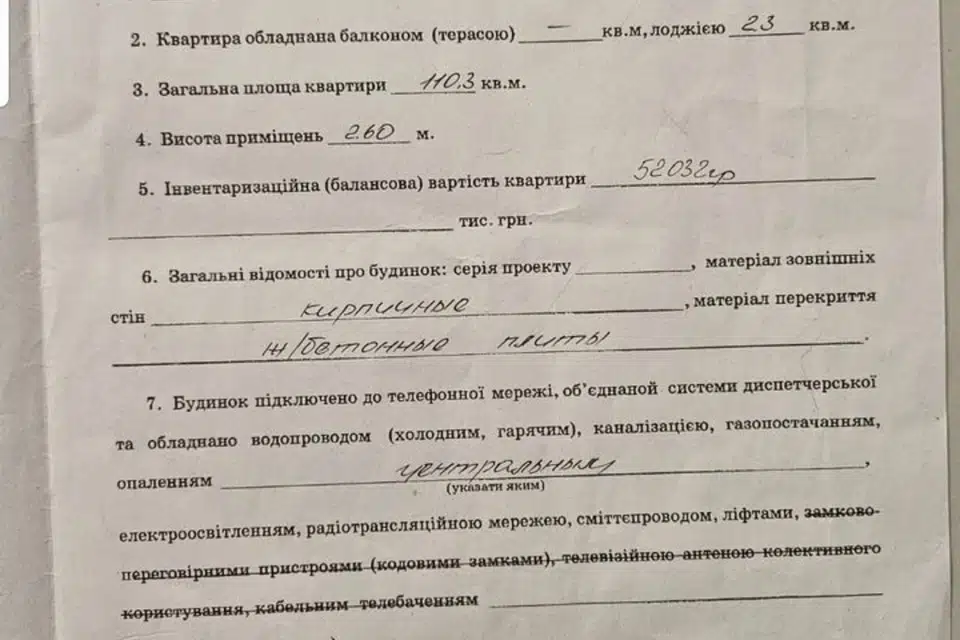 2. Квартира обладнана балконом (терасою) — кв.м, лоджією 23 кв.м.
3. Загальна площа квартири 110.3 кв.м.
4. Висота приміщень 2.60 м.
5. Інвентаризаційна (балансова) вартість квартири 52032гр
тис. грн.
6. Загальні відомості про будинок: серія проекту , матеріал зовнішніх
стін кирпичные , матеріал перекриття
ж/бетонные плиты .
7. Будинок підключено до телефонної мережі, об’єднаной системи диспетчерської
та обладнано водопроводом (холодним, гарячим), каналізацією, газопостачанням,
опаленням центральным ,
(указати яким)
електроосвітленням, радіотрансляційною мережею, сміттєпроводом, ліфтами, замково-
переговірними пристроями (кодовими замками), телевізійною антеною колективного
користування, кабельним телебаченням